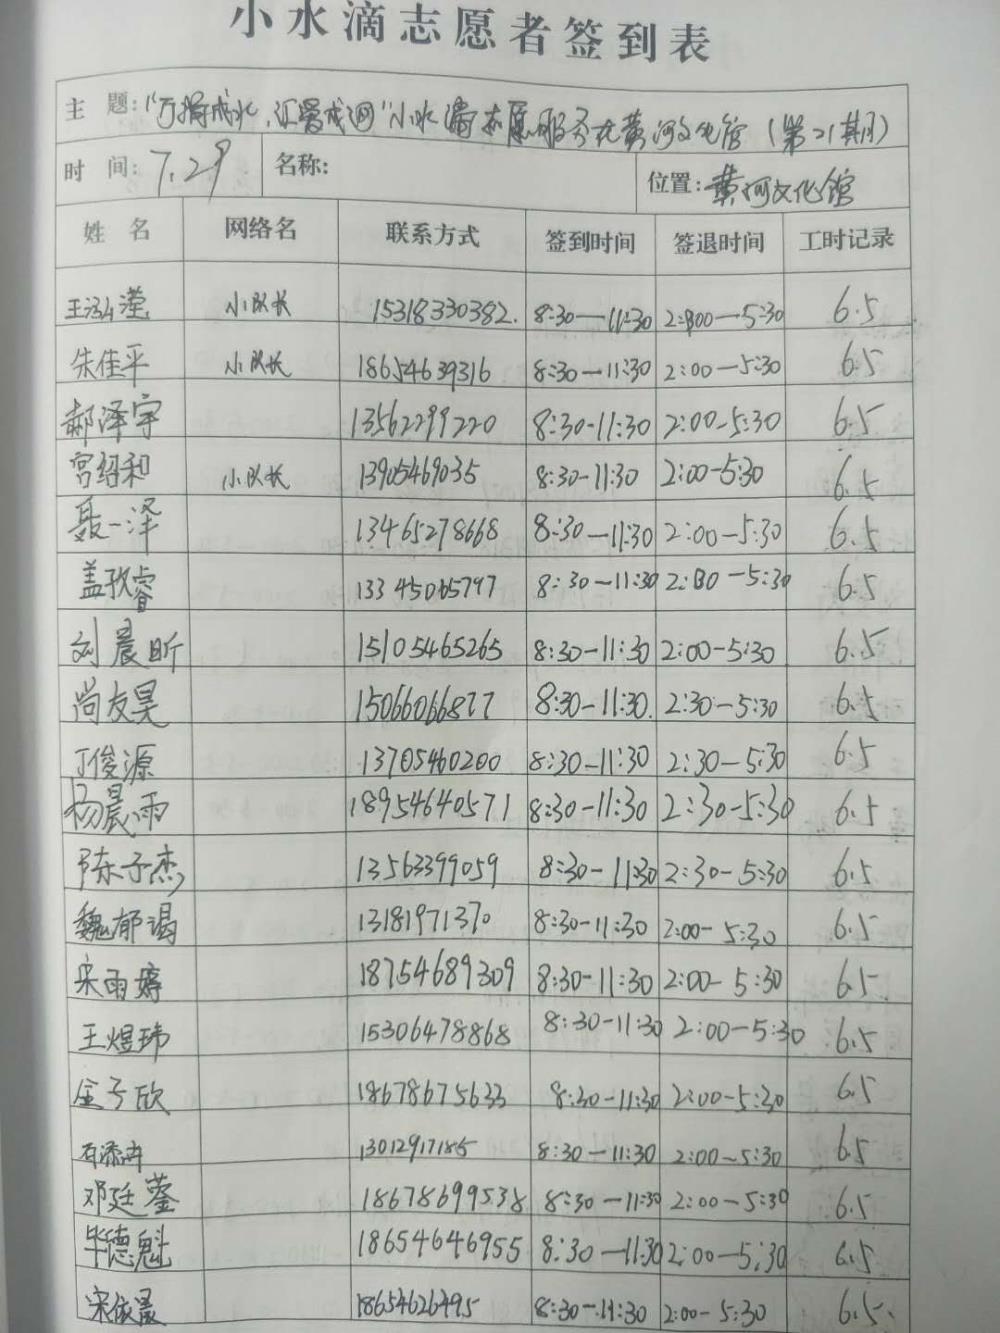 小水滴志愿者签到表
主 题: "万搦成水,汇署成河"小水滴志愿服务在黄河文化馆(第21期)
时 间: 7.29 名称: 位置: 黄河文化馆
姓 名 网络名 联系方式 签到时间 签退时间 工时记录
王泓滢 小队长 15318330382. 8:30—11:30 2:00—5:30 6.5
朱佳平 小队长 18654639316 8:30—11:30 2:00—5:30 6.5
郝泽宇 13562299220 8:30-11:30 2:00-5:30 6.5
宫绍和 小队长 13905469035 8:30-11:30 2:00-5:30 6.5
聂一泽 13465278668 8:30—11:30 2:00—5:30 6.5
盖孜睿 13345065797 8:30—11:30 2:30—5:30 6.5
刘晨昕 15105465265 8:30—11:30 2:00-5:30 6.5
尚友昊 15066066877 8:30—11:30. 2:30—5:30 6.5
丁俊源 13705460200 8:30—11:30 2:30—5:30 6.5
杨晨雨 18954640571 8:30-11:30 2:30-5:30 6.5
陈子杰 13563399059 8:30—11:30 2:30-5:30 6.5
魏郁谒 13181971370 8:30-11:30 2:00-5:30 6.5
宋雨婷 18754689309 8:30-11:30 2:00-5:30 6.5
王煜玮 15306478868 8:30-11:30 2:00—5:30 6.5
金子欣 18678675633 8:30-11:30 2:00-5:30 6.5
石添卉 13012917185 8:30—11:30 2:00—5:30 6.5
邓廷蓥 18678699538 8:30—11:30 2:00—5:30 6.5
毕德魁 18654646955 8:30—11:30 2:00—5:30 6.5
宋依晟 18654626495 8:30—11:30 2:00-5:30 6.5